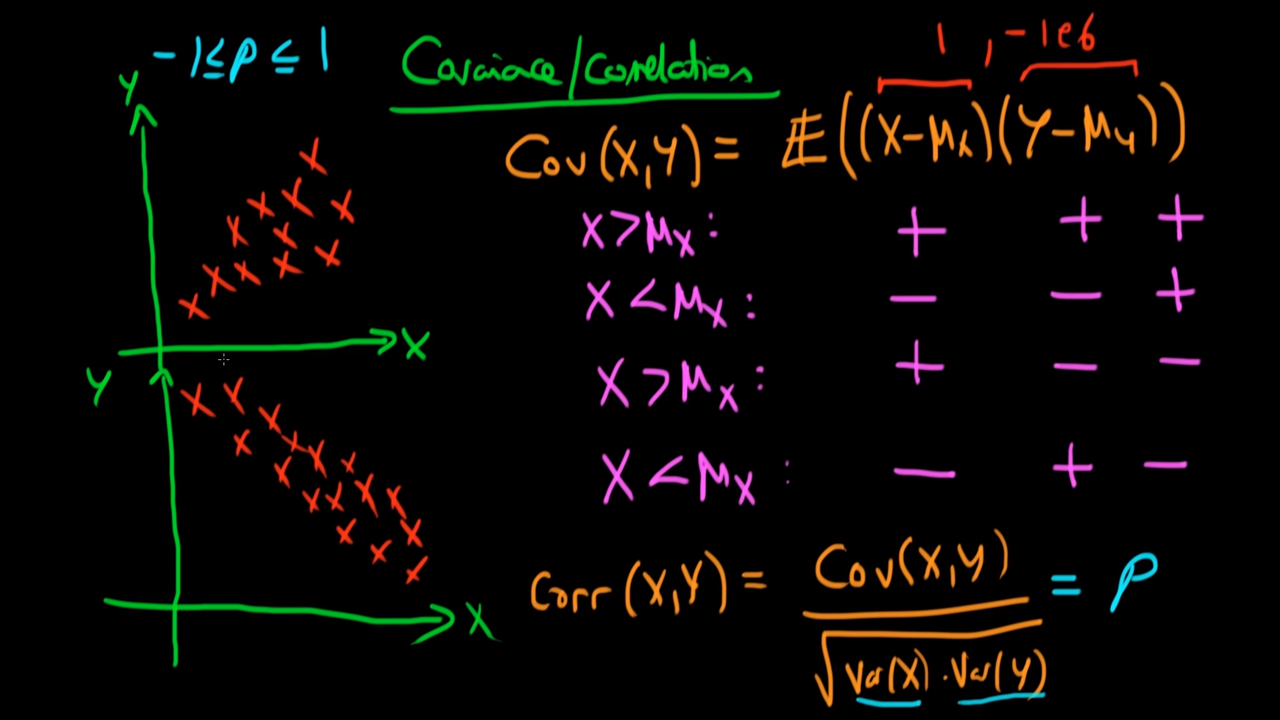 -1≤ρ≤1
Covariace/Correlation
1, -1e6
Y
Cov(X,Y) = E((X-μx)(Y-μy))
X>μx: + + +
X<μx: - - +
X
Y
X>μx: + - -
X<μx: - + -
X
Corr(X,Y) = Cov(X,Y) = ρ
√Var(X).Var(Y)